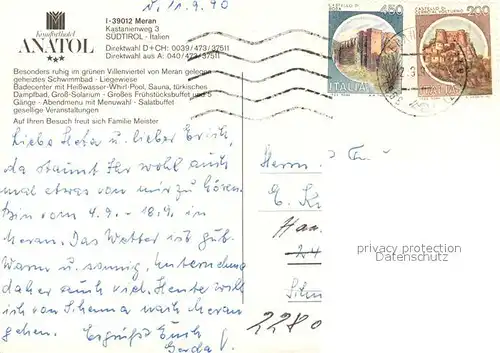 N., 11.9.90
Komforthotel
ANATOL
I-39012 Meran
Kastanienweg 3
SÜDTIROL - Italien
Direktwahl D+CH: 0039/473/37511
Direktwahl aus A: 040/473/37511
Besonders ruhig im grünen Villenviertel von Meran gelegen
geheiztes Schwimmbad - Liegewiese
Badecenter mit Heißwasser-Whirl-Pool, Sauna, türkisches
Dampfbad, Groß-Solarium - Großes Frühstücksbuffet und 5
Gänge - Abendmenu mit Menuwahl - Salatbuffet
gesellige Veranstaltungen
Auf Ihren Besuch freut sich Familie Meister
CASTELLO DI
450
ITALIA
CASTELLO DI
CERRO AL VOLTURNO
200
ITALIA
Liebe Heta u. lieber Erich,
da staunt Ihr wohl auch
mal etwas von mir zu hören.
Bin vom 4.9. - 18.9. in
Meran. Das Wetter ist gut.
Warm u. sonnig. Unternehme
daher auch viel. Heute will
ich von Schenna nach Meran
gehen. Es grüßt Euch
Gerda
Herrn
E.
2280
privacy protection
Datenschutz